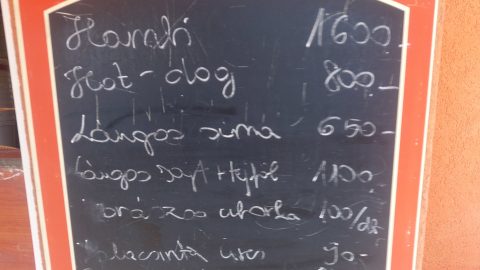 Hambi 1600.-
Hot-dog 800.-
Lángos sima 650.-
Lángos sajt+tejföl 1100.-
uborka 100/db
Palacsinta üres 90.-